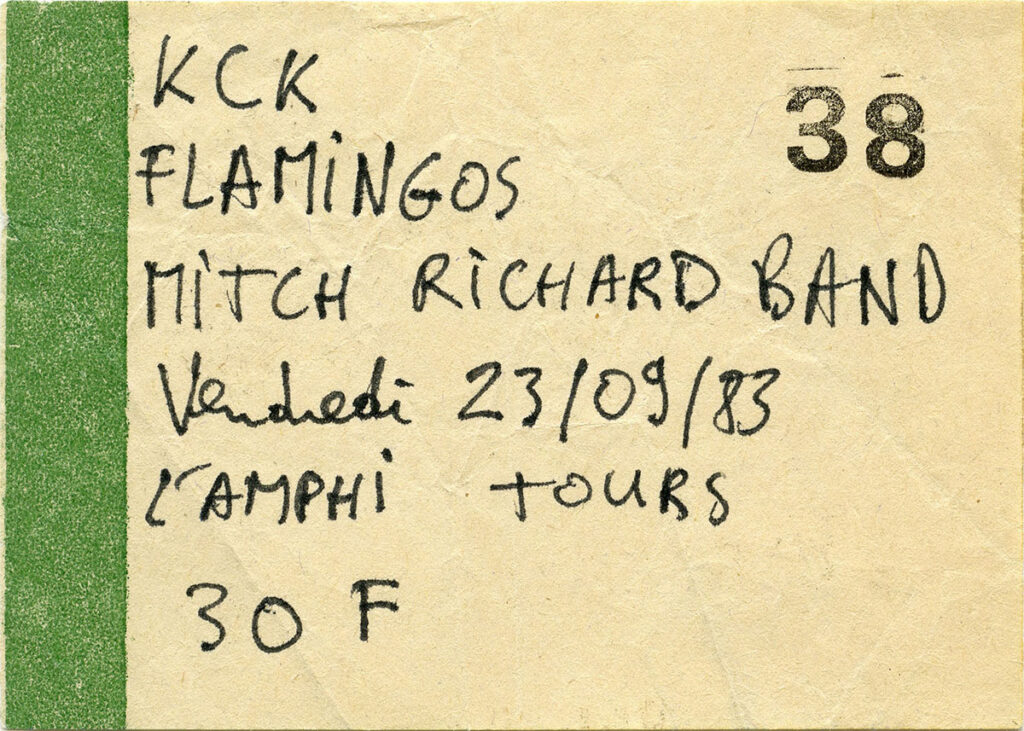 KCK
38
FLAMINGOS
MITCH RICHARD BAND
Vendredi 23/09/83
L'AMPHI TOURS
30 F